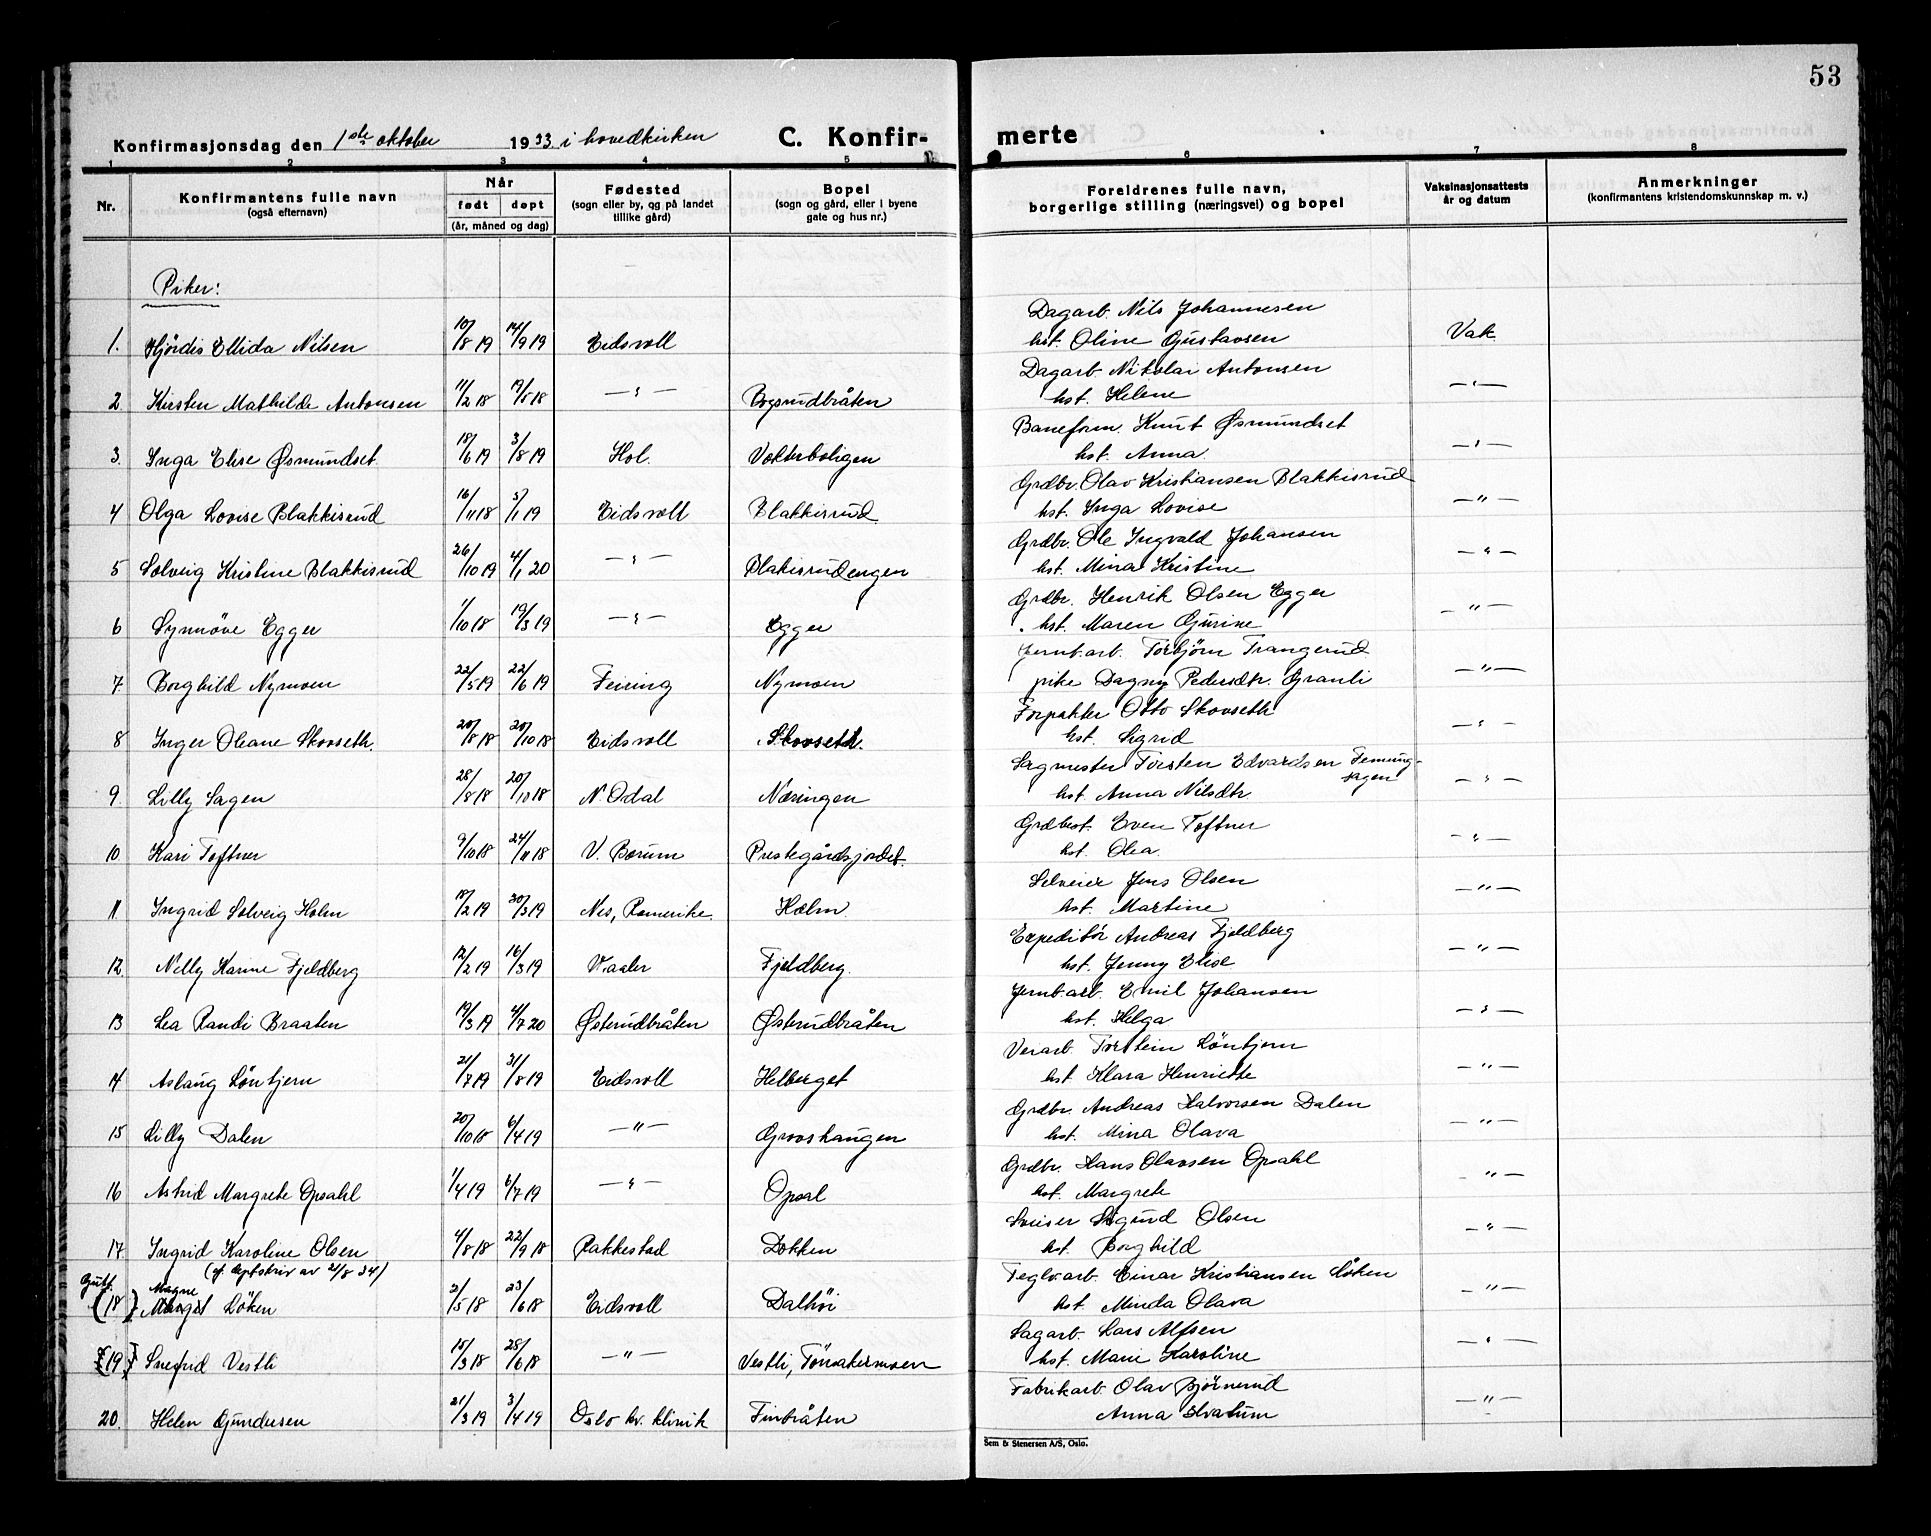 53
Konfirmasjonsdag den 1ste oktober 1933 i hovedkirken C. Konfir- merte
1 2 3 4 5 6 7 8
Nr. Konfirmantens fulle navn (også efternavn) Når født døpt (år, måned og dag) Fødested (sogn eller by, og på landet tillike gård) Bopel (sogn og gård, eller i byene gate og hus nr.) Foreldrenes fulle navn, borgerlige stilling (næringsvei) og bopel Vaksinasjonsattests år og datum Anmerkninger (konfirmantens kristendomskunnskap m. v.)
Piker:
Dagarb. Nils Johannesen
1. Hjördis Ellida Nilsen 10/8 19 14/9 19 Eidsvoll hst. Oline Gustavsen Vak.
Dagarb. Nikolai Antonsen
2. Kirsten Mathilde Antonsen 11/2 18 19/5 18 — " — Bogsrudbråten hst. Helene — " —
Baneform. Knut Øsmundset
3. Inga Elise Øsmundset 18/6 19 3/8 19 Hol. Vokterboligen hst. Anna. — " —
Grdbr. Olav Kristiansen Blakkisrud
4 Olga Lovise Blakkisrud 16/11 18 5/1 19 Eidsvoll Blakkisrud hst. Inga Lovise — " —
Grdbr. Ole Ingvald Johansen
5 Solveig Kristine Blakkisrud 26/10 19 4/1 20 — " — Blakisrudengen hst. Mina Kristine — " —
Grdbr. Henrik Olsen Egger
6 Synnöve Egger 1/10 18 19/3 19 — " — Egger hst. Maren Gurine — " —
Jernb.arb. Torbjörn Trangerud
7. Borghild Nymoen 22/5 19 22/6 19 Feiring Nymoen pike Dagny Pedersdtr. Granli — " —
Forpakter Otto Skovseth
8 Inger Oleane Skovseth. 20/8 18 20/10 18 Eidsvoll Skovseth. hst. Sigrid — " —
Sagmester Torsten Edvardsen Temung-
sagen
9. Lilly Sagen 28/8 18 20/10 18 N. Odal Næringen hst. Anna Nilsdtr. — " —
Grdbest. Even Toftner
10 Kari Toftner 9/10 18 24/11 18 V. Bærum Prestegårdsjordet. hst. Olea. — " —
Selveier Jens Olsen
11 Ingrid Solveig Holm 18/2 19 30/3 19 Nes, Romerike. Holm hst. Martine — " —
Expeditör Andreas Fjeldberg
12. Nelly Karine Fjeldberg 12/2 19 16/3 19 Vaaler Fjeldberg. hst. Jenny Elise — " —
Jernb.arb. Emil Johansen
13 Lea Randi Braaten 19/3 19 4/7 20 Østerudbråten Østerudbråten hst. Helga — " —
Verarb. Torstein Löntjern
14 Aslaug Löntjern 21/7 19 31/8 19 Eidsvoll Helberget hst. Klara Henriette — " —
Grdbr. Andreas Halvorsen Dalen
15 Lilly Dalen 20/10 18 6/4 19 — " — Grooshaugen hst. Mina Olava — " —
Grdbr. Hans Olavsen Opsahl
16 Astrid Margrete Opsahl 1/4 19 6/7 19 — " — Opsal hst. Margrete — " —
Sveiser Sigurd Olsen
17. Ingrid Karoline Olsen 4/8 18 22/9 18 Rakkestad Dokken hst. Borghild — " —
(cf. dept.skriv av 21/8 34)
Teglv.arb. Einar Kristiansen Löken
Gutt. Magne
(18) Margit Löken 2/5 18 23/6 18 Eidsvoll Dalhöi hst. Minda Olava — " —
Sagarb. Lars Alfsen
19 Snefrid Vestli 15/3 18 28/6 18 — " — Vestli, Tönsakermoen hst. Marie Karoline — " —
Fabrikarb. Olav Björnerud
20. Helen Gundersen 21/3 19 3/4 19 Oslo kv. klinik Finbråten Anna — " —
Sem & Stenersen A/S, Oslo.